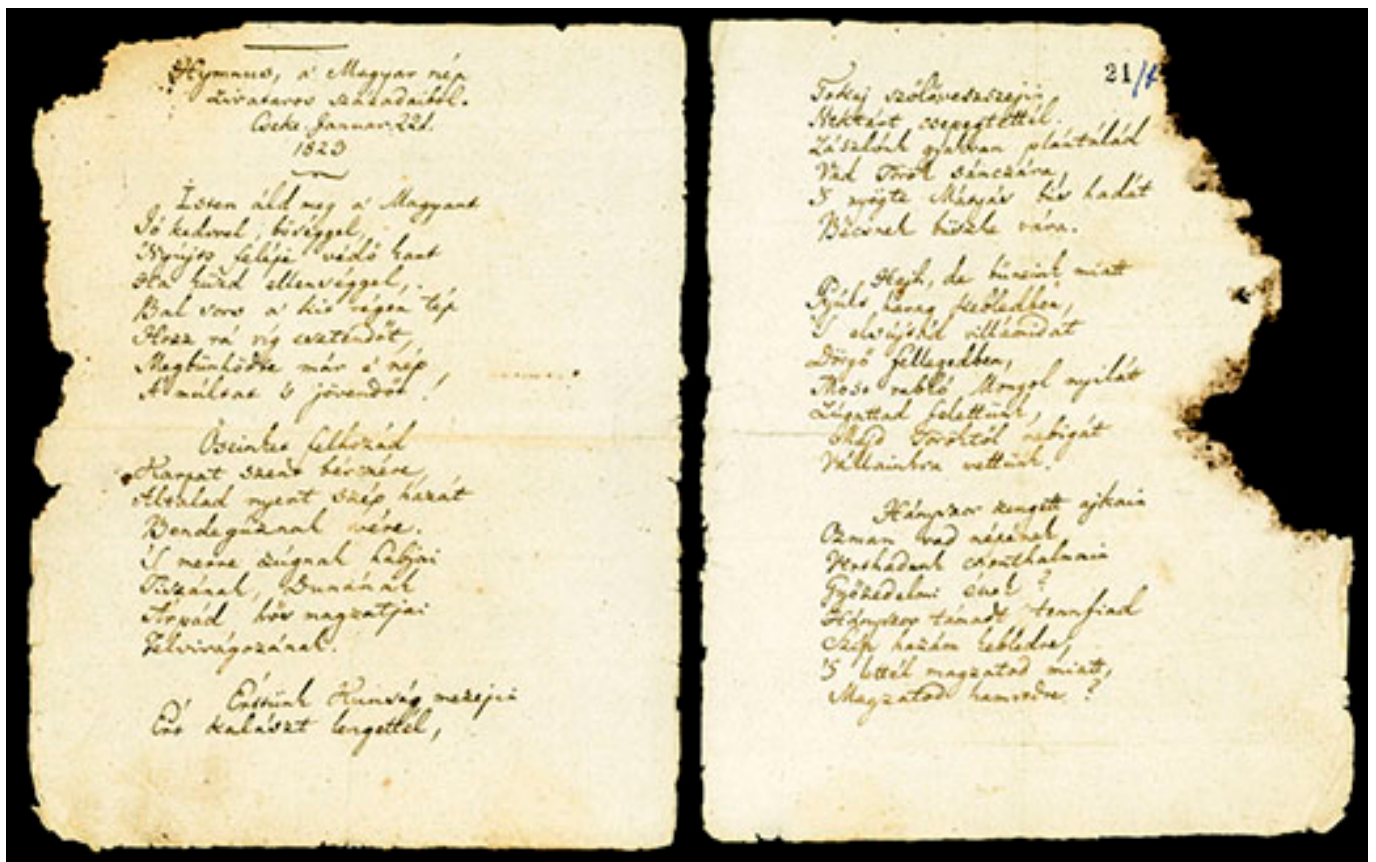 Hymnus, a' Magyar nép
zivataros századaiból.
Cseke. Januar. 22d.
1823
Isten áldd meg a' Magyart
Jó kedvvel, bőséggel,
Nyújts feléje védő kart
Ha küzd ellenséggel,
Bal sors a' kit régen tép
Hozz rá víg esztendőt,
Megbűnhődte már e' nép
A' múltat 's jövendőt!
Őseinket felhozád
Kárpát szent bérczére,
Általad nyert szép hazát
Bendegúznak vére.
'S merre zúgnak habjai
Tiszának, Dunának
Árpád hős magzatjai
Felvirágozának.
Értünk Kunság mezején
Ért kalászt lengettél,
21/1
Tokaj szőlővesszején
Nektárt csepegtettél.
Zászlónk gyakran plántálád
Vad Török sánczára,
'S nyögte Mátyás bús hadát
Bécsnek büszke vára.
Hejh, de bűneink miatt
Gyúlt harag kebledben,
'S elsújtád villámidat
Dörgő fellegedben,
Most rabló Mongol nyilát
Zúgattad felettünk,
Majd Töröktől rabigát
Vállainkra vettünk.
Hányszor zengett ajkain
Ozman vad népének
Vert hadunk csonthalmain
Győzedelmi ének?
Hányszor támadt tennfiad
Szép hazám kebledre,
'S lettél magzatod miatt,
Magzatod hamvedre?